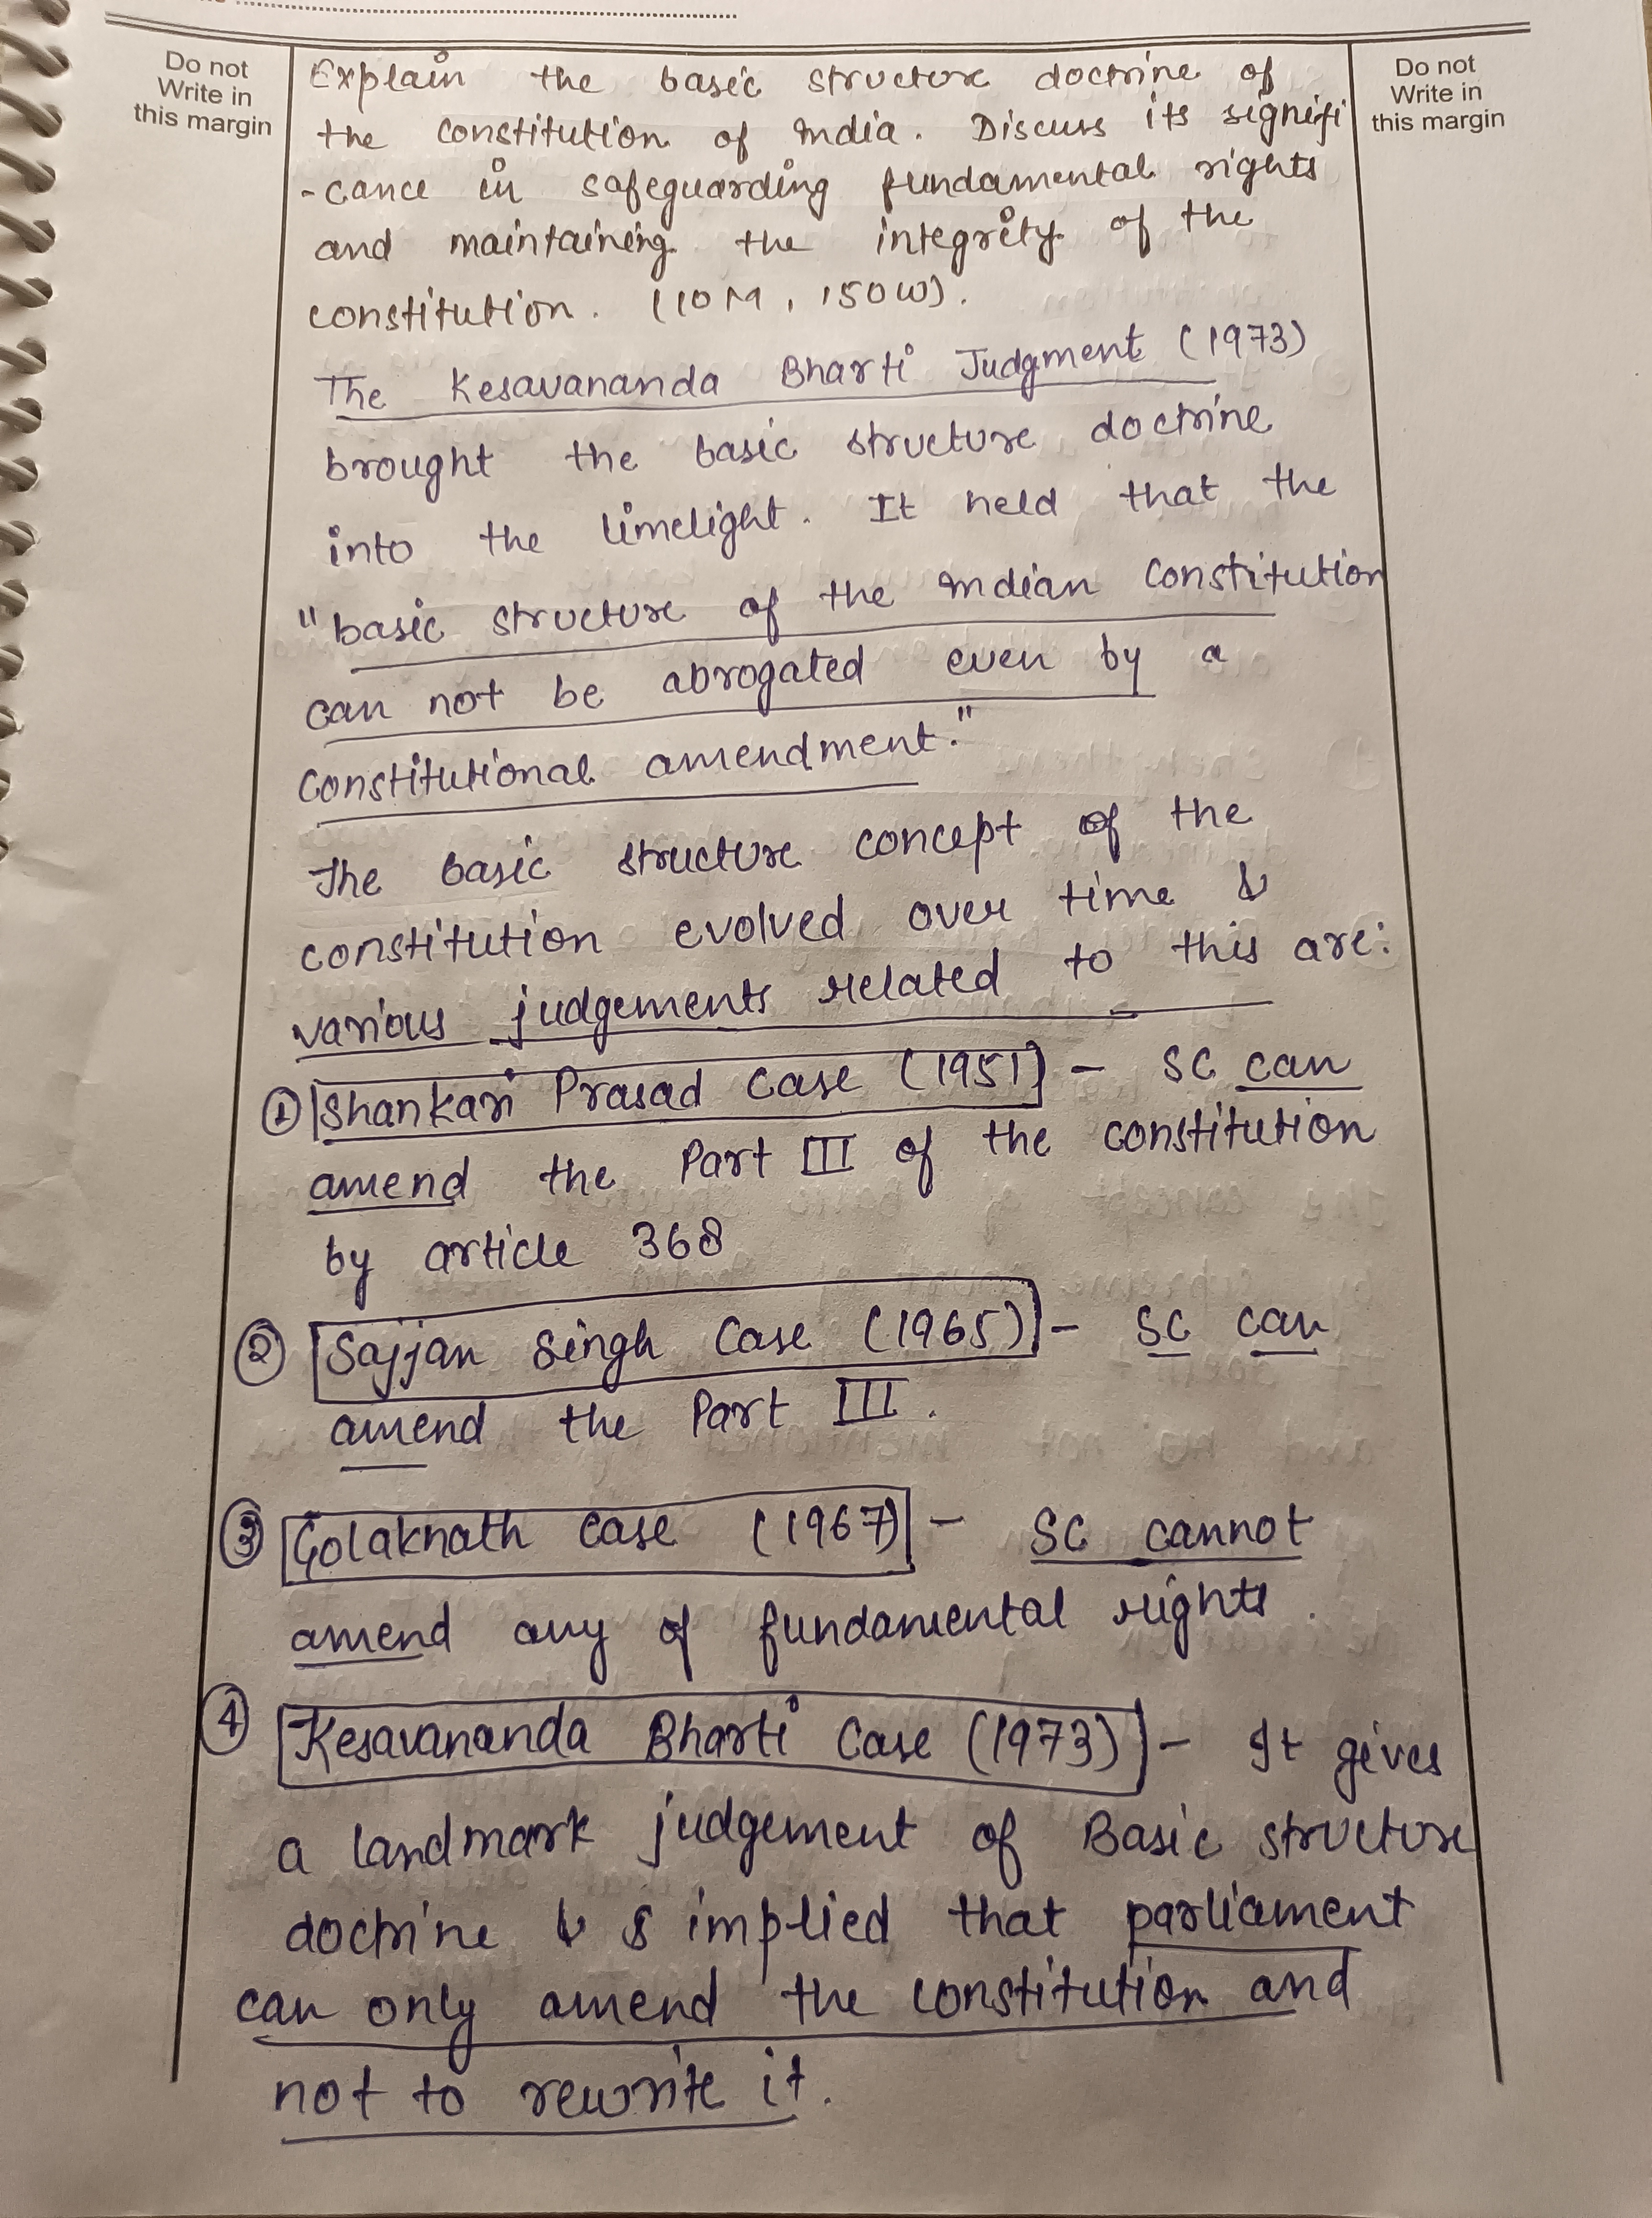 Do not
Write in
this margin
Do not
Write in
this margin
Explain the basic structure doctrine of
the constitution of India. Discuss its signifi
-cance in safeguarding fundamental rights
and maintaining the integrity of the
constitution. (10M, 150W).
The Kesavananda Bharti Judgment (1973)
brought the basic structure doctrine
into the limelight. It held that the
"basic structure of the Indian Constitution
can not be abrogated even by a
Constitutional amendment."
The basic structure concept of the
constitution evolved over time &
various judgements related to this are:
① Shankari Prasad Case (1951) - SC can
amend the Part III of the constitution
by article 368
② Sajjan Singh Case (1965) - SC can
amend the Part III.
③ Golaknath case (1967) - SC cannot
amend any of fundamental rights.
④ Kesavananda Bharti Case (1973) - It gives
a landmark judgement of Basic structure
doctrine & implied that parliament
can only amend the constitution and
not to rewrite it.